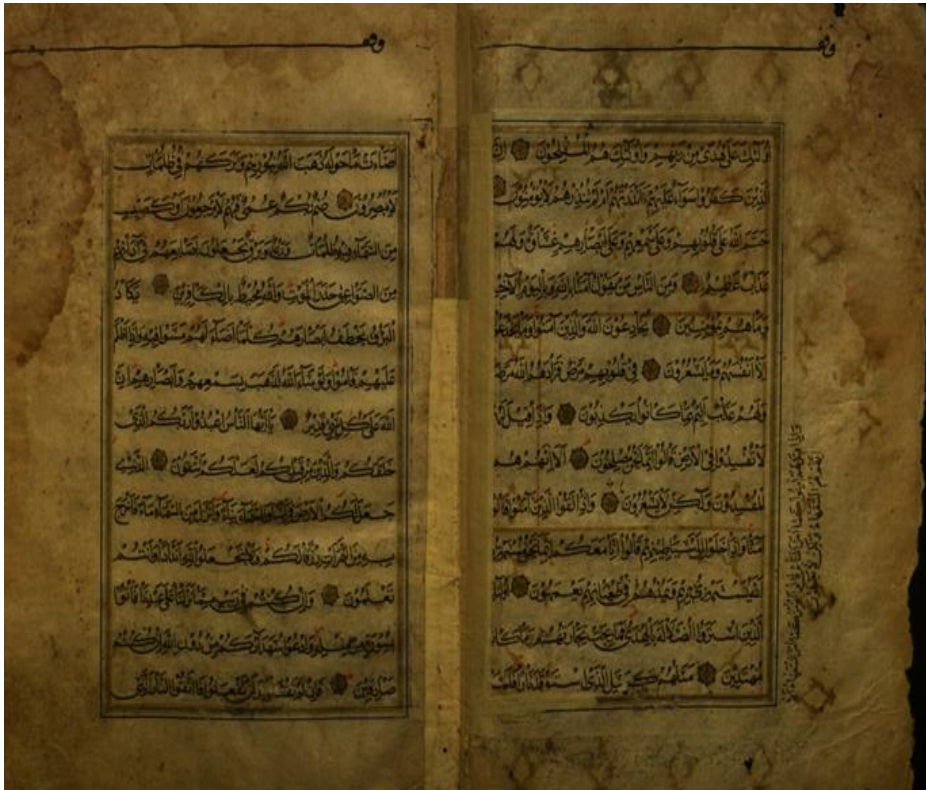 وقف
اُولٰئِكَ عَلٰى هُدًى مِنْ رَبِّهِمْ وَاُولٰئِكَ هُمُ الْمُفْلِحُونَ اِنَّ
الَّذِينَ كَفَرُوا سَوَاءٌ عَلَيْهِمْ ءَاَنْذَرْتَهُمْ اَمْ لَمْ تُنْذِرْهُمْ لَا يُؤْمِنُونَ
خَتَمَ اللهُ عَلٰى قُلُوبِهِمْ وَعَلٰى سَمْعِهِمْ وَعَلٰى اَبْصَارِهِمْ غِشَاوَةٌ وَلَهُمْ
عَذَابٌ عَظِيمٌ وَمِنَ النَّاسِ مَنْ يَقُولُ اٰمَنَّا بِاللهِ وَبِالْيَوْمِ الْاٰخِرِ
وَمَا هُمْ بِمُؤْمِنِينَ يُخَادِعُونَ اللهَ وَالَّذِينَ اٰمَنُوا وَمَا يَخْدَعُونَ
اِلَّا اَنْفُسَهُمْ وَمَا يَشْعُرُونَ فِي قُلُوبِهِمْ مَرَضٌ فَزَادَهُمُ اللهُ مَرَضًا
وَلَهُمْ عَذَابٌ اَلِيمٌ بِمَا كَانُوا يَكْذِبُونَ وَاِذَا قِيلَ لَهُمْ
لَا تُفْسِدُوا فِي الْاَرْضِ قَالُوا اِنَّمَا نَحْنُ مُصْلِحُونَ اَلَا اِنَّهُمْ هُمُ
الْمُفْسِدُونَ وَلٰكِنْ لَا يَشْعُرُونَ وَاِذَا لَقُوا الَّذِينَ اٰمَنُوا قَالُوا
اٰمَنَّا وَاِذَا خَلَوْا اِلٰى شَيَاطِينِهِمْ قَالُوا اِنَّا مَعَكُمْ اِنَّمَا نَحْنُ مُسْتَهْزِؤُنَ
اَللهُ يَسْتَهْزِئُ بِهِمْ وَيَمُدُّهُمْ فِي طُغْيَانِهِمْ يَعْمَهُونَ اُولٰئِكَ
الَّذِينَ اشْتَرَوُا الضَّلَالَةَ بِالْهُدٰى فَمَا رَبِحَتْ تِجَارَتُهُمْ وَمَا كَانُوا
مُهْتَدِينَ مَثَلُهُمْ كَمَثَلِ الَّذِي اسْتَوْقَدَ نَارًا فَلَمَّا
وَاِذَا قِيلَ لَهُمْ اٰمِنُوا كَمَا اٰمَنَ النَّاسُ قَالُوا اَنُؤْمِنُ كَمَا اٰمَنَ السُّفَهَاءُ اَلَا
اِنَّهُمْ هُمُ السُّفَهَاءُ وَلٰكِنْ لَا يَعْلَمُونَ
وقف
اَضَاءَتْ مَا حَوْلَهُ ذَهَبَ اللهُ بِنُورِهِمْ وَتَرَكَهُمْ فِي ظُلُمَاتٍ
لَا يُبْصِرُونَ صُمٌّ بُكْمٌ عُمْيٌ فَهُمْ لَا يَرْجِعُونَ اَوْ كَصَيِّبٍ
مِنَ السَّمَاءِ فِيهِ ظُلُمَاتٌ وَرَعْدٌ وَبَرْقٌ يَجْعَلُونَ اَصَابِعَهُمْ فِي اٰذَانِهِمْ
مِنَ الصَّوَاعِقِ حَذَرَ الْمَوْتِ وَاللهُ مُحِيطٌ بِالْكَافِرِينَ يَكَادُ
الْبَرْقُ يَخْطَفُ اَبْصَارَهُمْ كُلَّمَا اَضَاءَ لَهُمْ مَشَوْا فِيهِ وَاِذَا اَظْلَمَ
عَلَيْهِمْ قَامُوا وَلَوْ شَاءَ اللهُ لَذَهَبَ بِسَمْعِهِمْ وَاَبْصَارِهِمْ اِنَّ
اللهَ عَلٰى كُلِّ شَيْءٍ قَدِيرٌ يَا اَيُّهَا النَّاسُ اعْبُدُوا رَبَّكُمُ الَّذِي
خَلَقَكُمْ وَالَّذِينَ مِنْ قَبْلِكُمْ لَعَلَّكُمْ تَتَّقُونَ اَلَّذِي
جَعَلَ لَكُمُ الْاَرْضَ فِرَاشًا وَالسَّمَاءَ بِنَاءً وَاَنْزَلَ مِنَ السَّمَاءِ مَاءً فَاَخْرَجَ
بِهِ مِنَ الثَّمَرَاتِ رِزْقًا لَكُمْ فَلَا تَجْعَلُوا لِلهِ اَنْدَادًا وَاَنْتُمْ
تَعْلَمُونَ وَاِنْ كُنْتُمْ فِي رَيْبٍ مِمَّا نَزَّلْنَا عَلٰى عَبْدِنَا فَأْتُوا
بِسُورَةٍ مِنْ مِثْلِهِ وَادْعُوا شُهَدَاءَكُمْ مِنْ دُونِ اللهِ اِنْ كُنْتُمْ
صَادِقِينَ فَاِنْ لَمْ تَفْعَلُوا وَلَنْ تَفْعَلُوا فَاتَّقُوا النَّارَ الَّتِي